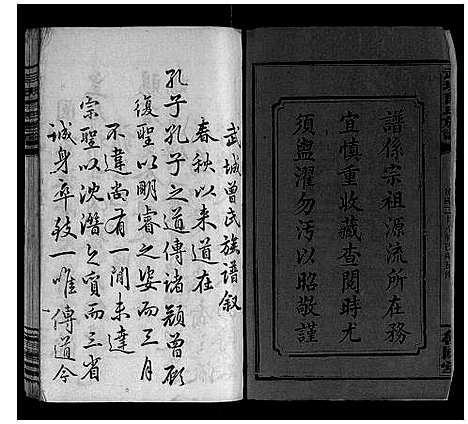 譜係宗祖源流所在務
宜慎重收藏查閱時尤
須盥濯勿汚以昭敬謹
武城曾氏族譜叙
春秋以来道在
孔子孔子之道傳諸顏曾顧
復聖以明睿之姿而三月
不違尚有一間未達
宗聖以沈潛之質而三省
誠身卒致一唯傳道今